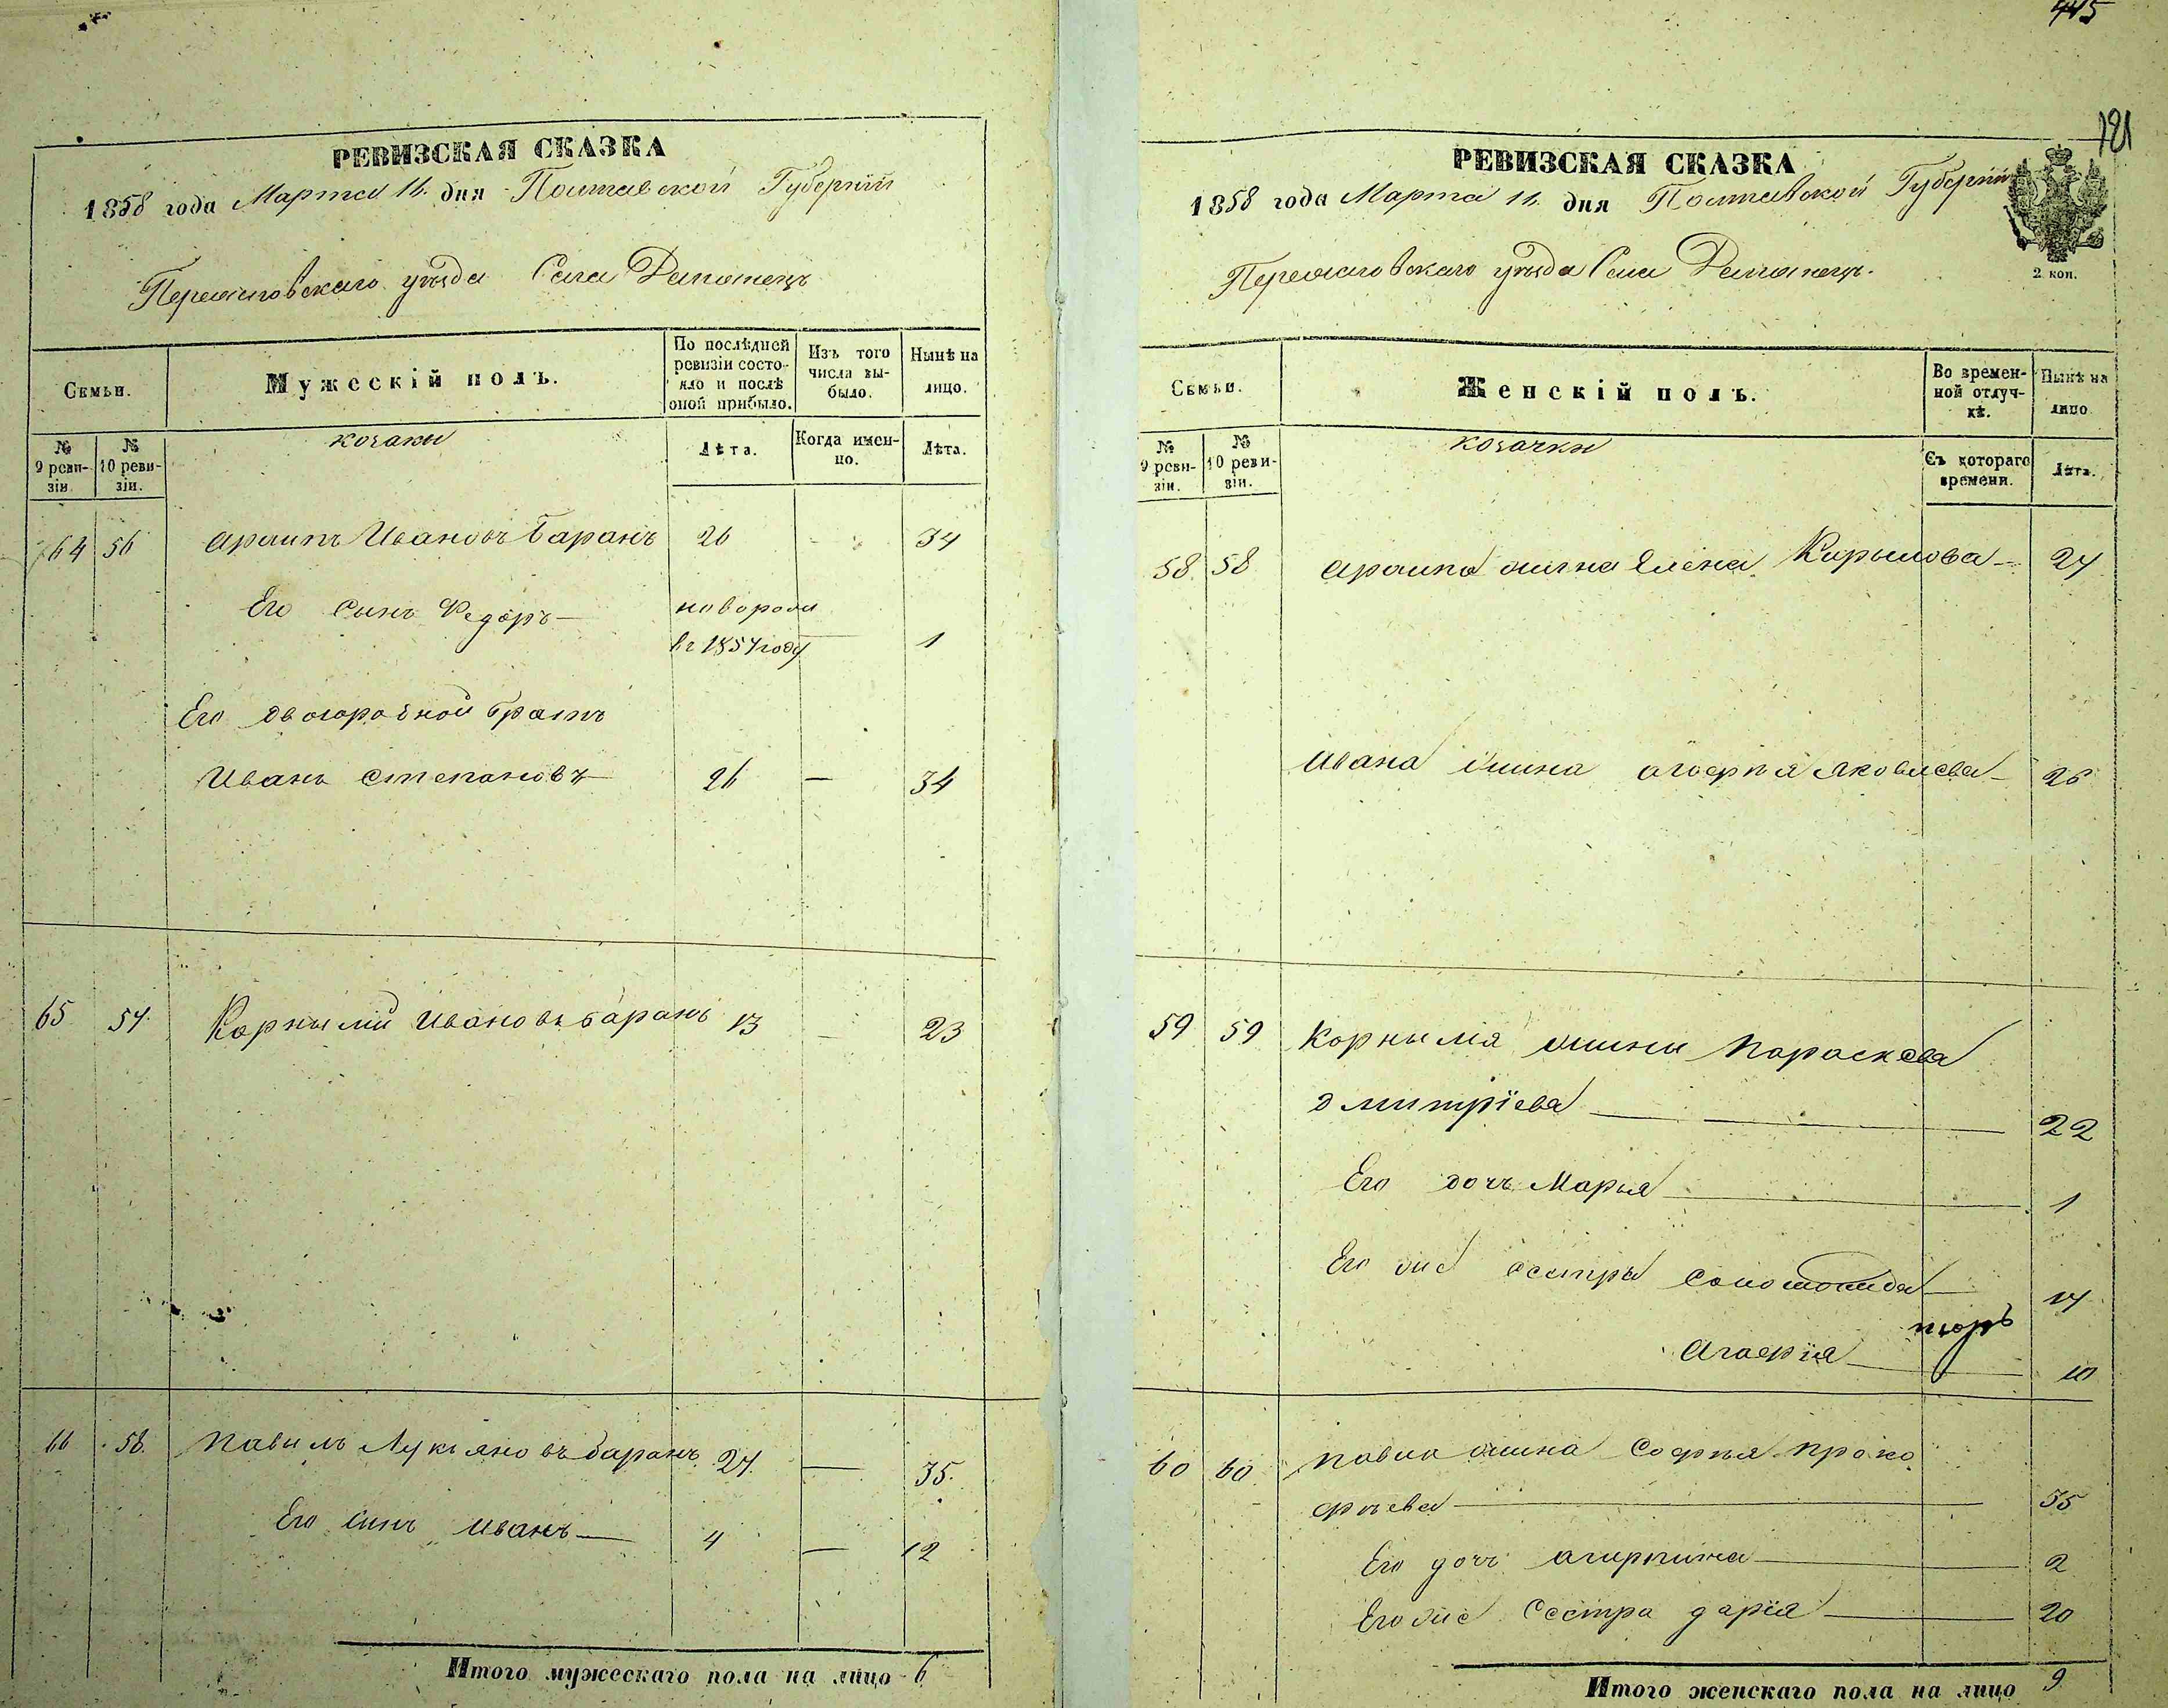 РЕВИЗСКАЯ СКАЗКА
1858 года Марта 11. дня Полтавской Губерніи
Переяславскаго уѣзда Села
Семьи.
Мужескій полъ.
По послѣдней ревизіи состояло и послѣ оной прибыло.
Изъ того числа выбыло.
Нынѣ на лицо.
№ 9 ревизіи.
№ 10 ревизіи.
козаки
Лѣта.
Когда именно.
Лѣта.
64 56 Архипъ Ивановъ Баранъ 26 - 34
Его Сынъ Федоръ — новорож
въ 1857 году — 1
Его двоюродной братъ
Иванъ Степановъ — 26 — 34
65 57. Корнылій Ивановъ баранъ 13 23
66 58. Павилъ Лукіяновъ баранъ 27. — 35.
Его синъ Иванъ — 4 — 12
Итого мужескаго пола на лицо 6
445
121
РЕВИЗСКАЯ СКАЗКА
1858 года Марта 11. дня Полтавской Губерніи
2 коп.
Переяславскаго уѣзда Села
Семьи.
Женскій полъ.
Во временной отлучкѣ.
Нынѣ на лицо
№ 9 ревизіи.
№ 10 ревизіи.
козачки
Съ котораго времени.
Лѣта.
58. 58 Архипа жина Елена Кирылова — 27
Ивана жина агафія Яковлева — 26
59 59 Корныля жина Параскева
дмитріева — 22
Его дочь Марья — 1
Его же сестра — 17
Агафія — 10
60 60 Павла жина Софья Проко
фьева — 35
Его дочь агирпина — 2
Его же Сестра дарія — 20
Итого женскаго пола на лицо 9